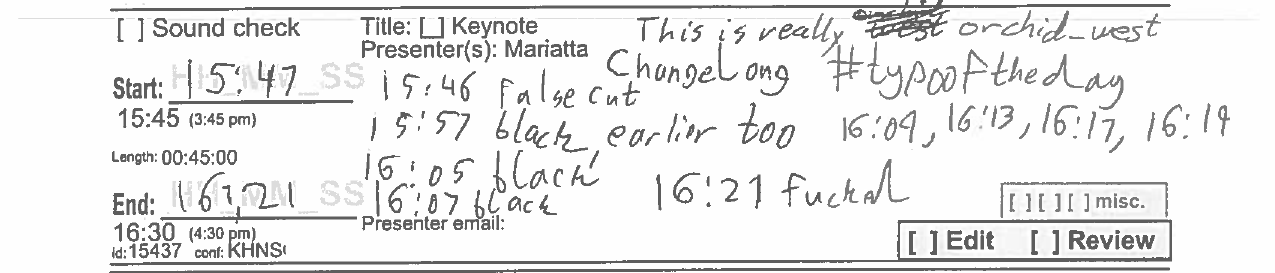 [ ] Sound check
Title: [ ] Keynote
This is really orchid_west
Presenter(s): Mariatta
ChangeLong #typooftheday
HH_MM_SS
Start: 15:47
15:46 False cut
15:45 (3:45 pm)
15:57 black, earlier too 16:09, 16:13, 16:17, 16:19
Length: 00:45:00
16:05 black
HH_MM_SS
End: 16:21
16:07 black
16:21 fucked
[ ] [ ] [ ] misc.
Presenter email:
16:30 (4:30 pm)
[ ] Edit [ ] Review
id:15437 conf: KHNS